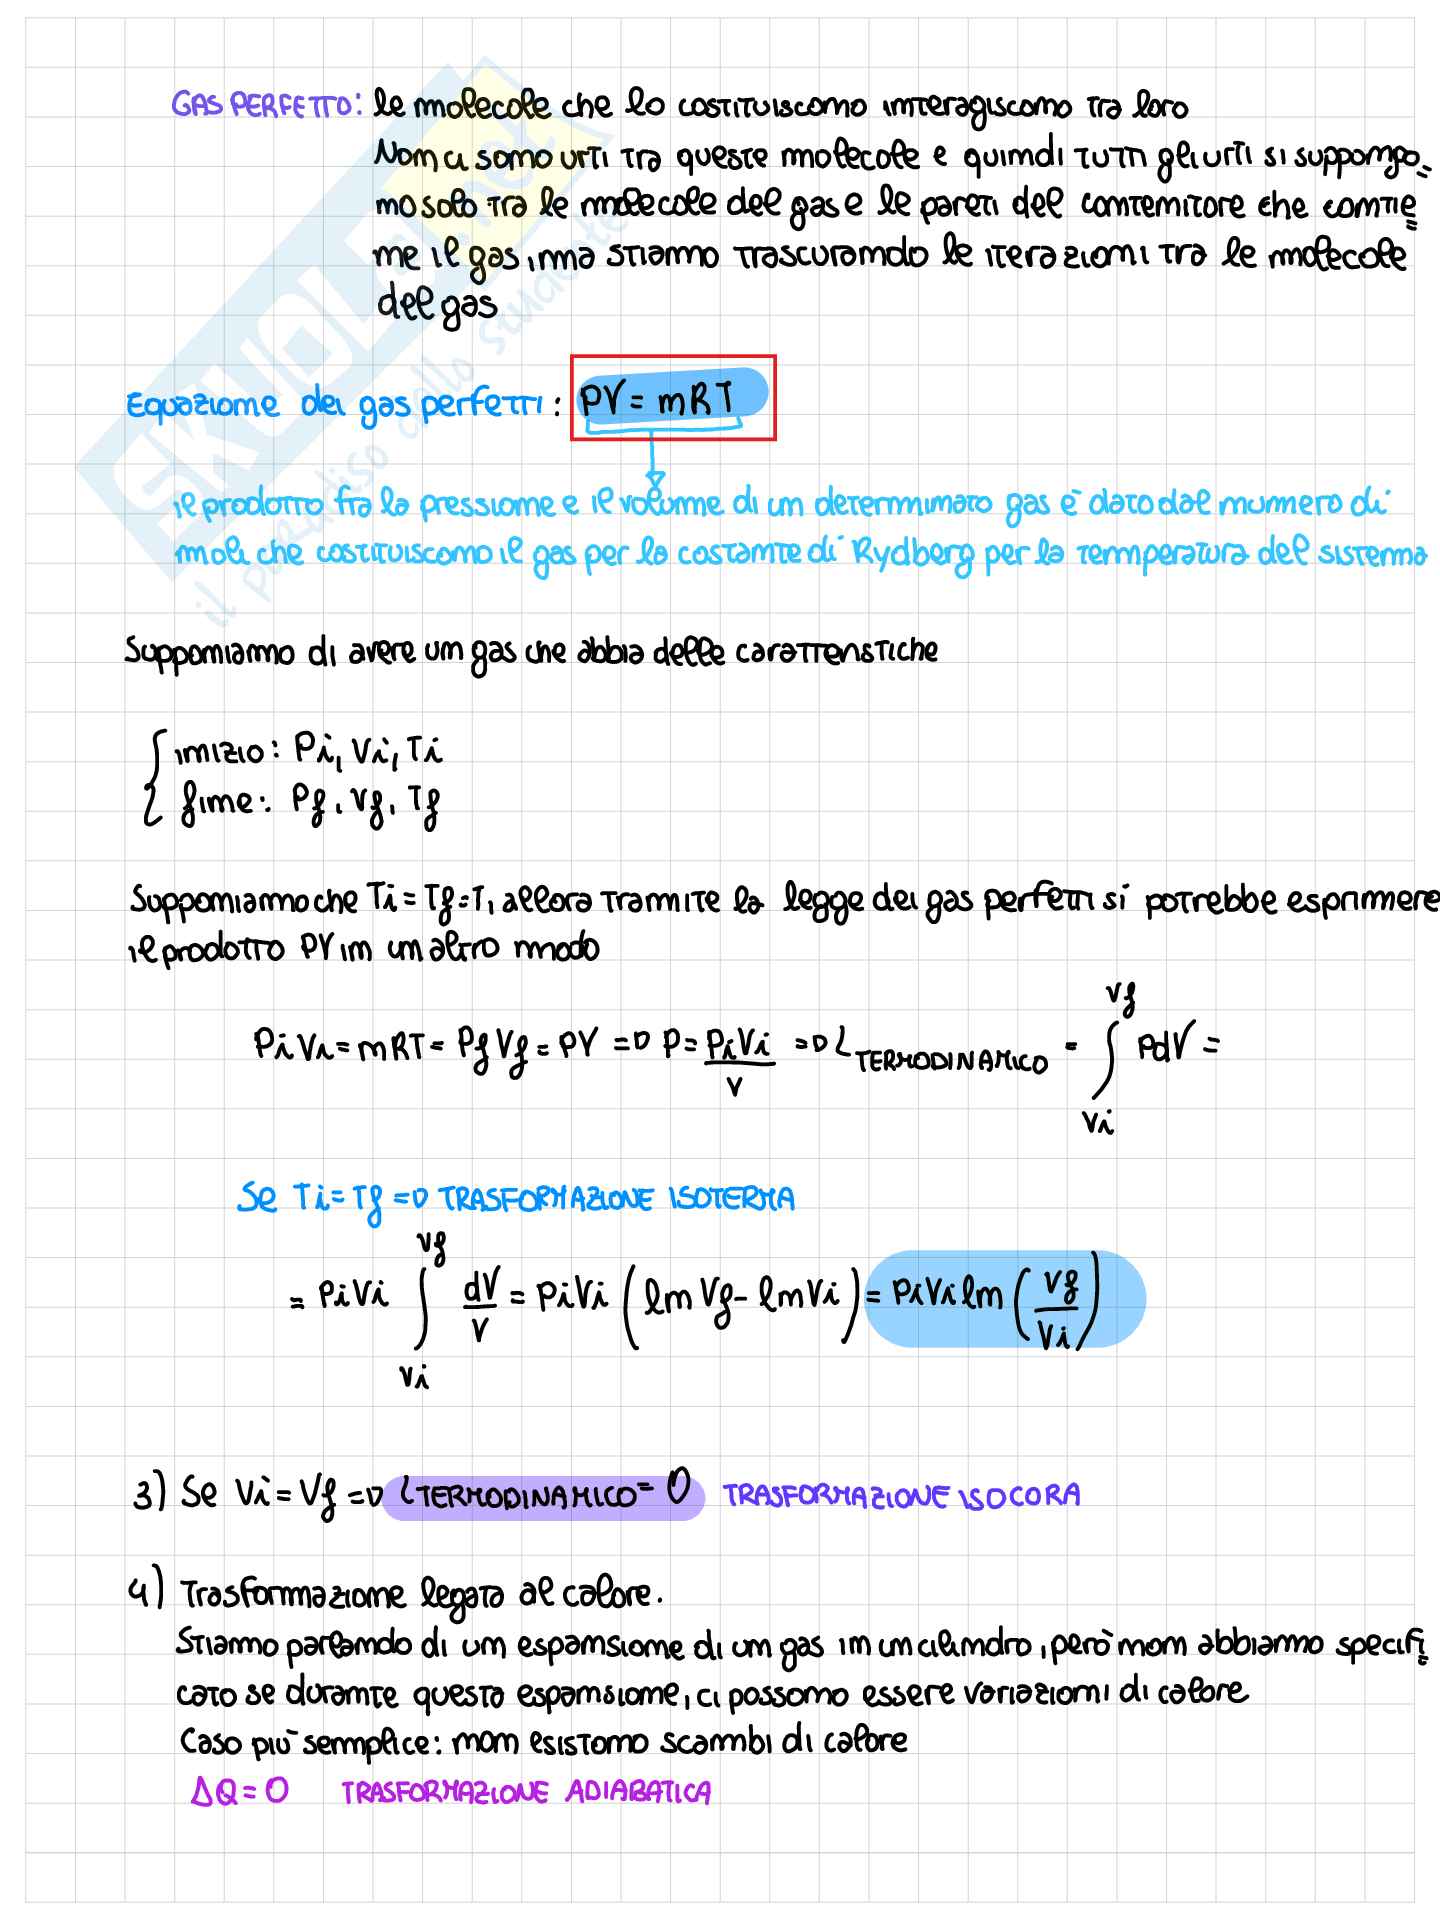 GAS PERFETTO: le molecole che lo costituiscono interagiscono tra loro
Non ci sono urti tra queste molecole e quindi tutti gli urti si suppongo=
no solo tra le molecole del gas e le pareti del contenitore che contie=
ne il gas, ma stiamo trascurando le iterazioni tra le molecole
del gas
Equazione dei gas perfetti: PV = nRT
il prodotto fra la pressione e il volume di un determinato gas è dato dal numero di
moli che costituiscono il gas per la costante di Rydberg per la temperatura del sistema
Supponiamo di avere un gas che abbia delle caratteristiche
{ inizio: Pi, Vi, Ti
fine: Pf, Vf, Tf
Supponiamo che Ti = Tf = T, allora tramite la legge dei gas perfetti si potrebbe esprimere
il prodotto PV in un altro modo
PiVi = nRT = PfVf = PV => P = PiVi/V => L TERMODINAMICO = ∫ Vi Vf PdV =
Se Ti = Tf => TRASFORMAZIONE ISOTERMA
= PiVi ∫ Vi Vf dV/V = PiVi (ln Vf - ln Vi) = PiVi ln (Vf/Vi)
3) Se Vi = Vf => L TERMODINAMICO = 0 TRASFORMAZIONE ISOCORA
4) Trasformazione legata al calore.
Stiamo parlando di un espansione di un gas in un cilindro, però non abbiamo specifi=
cato se durante questa espansione, ci possono essere variazioni di calore
Caso più semplice: non esistono scambi di calore
ΔQ = 0 TRASFORMAZIONE ADIABATICA
SKUOLA.net
il paradiso dello studente